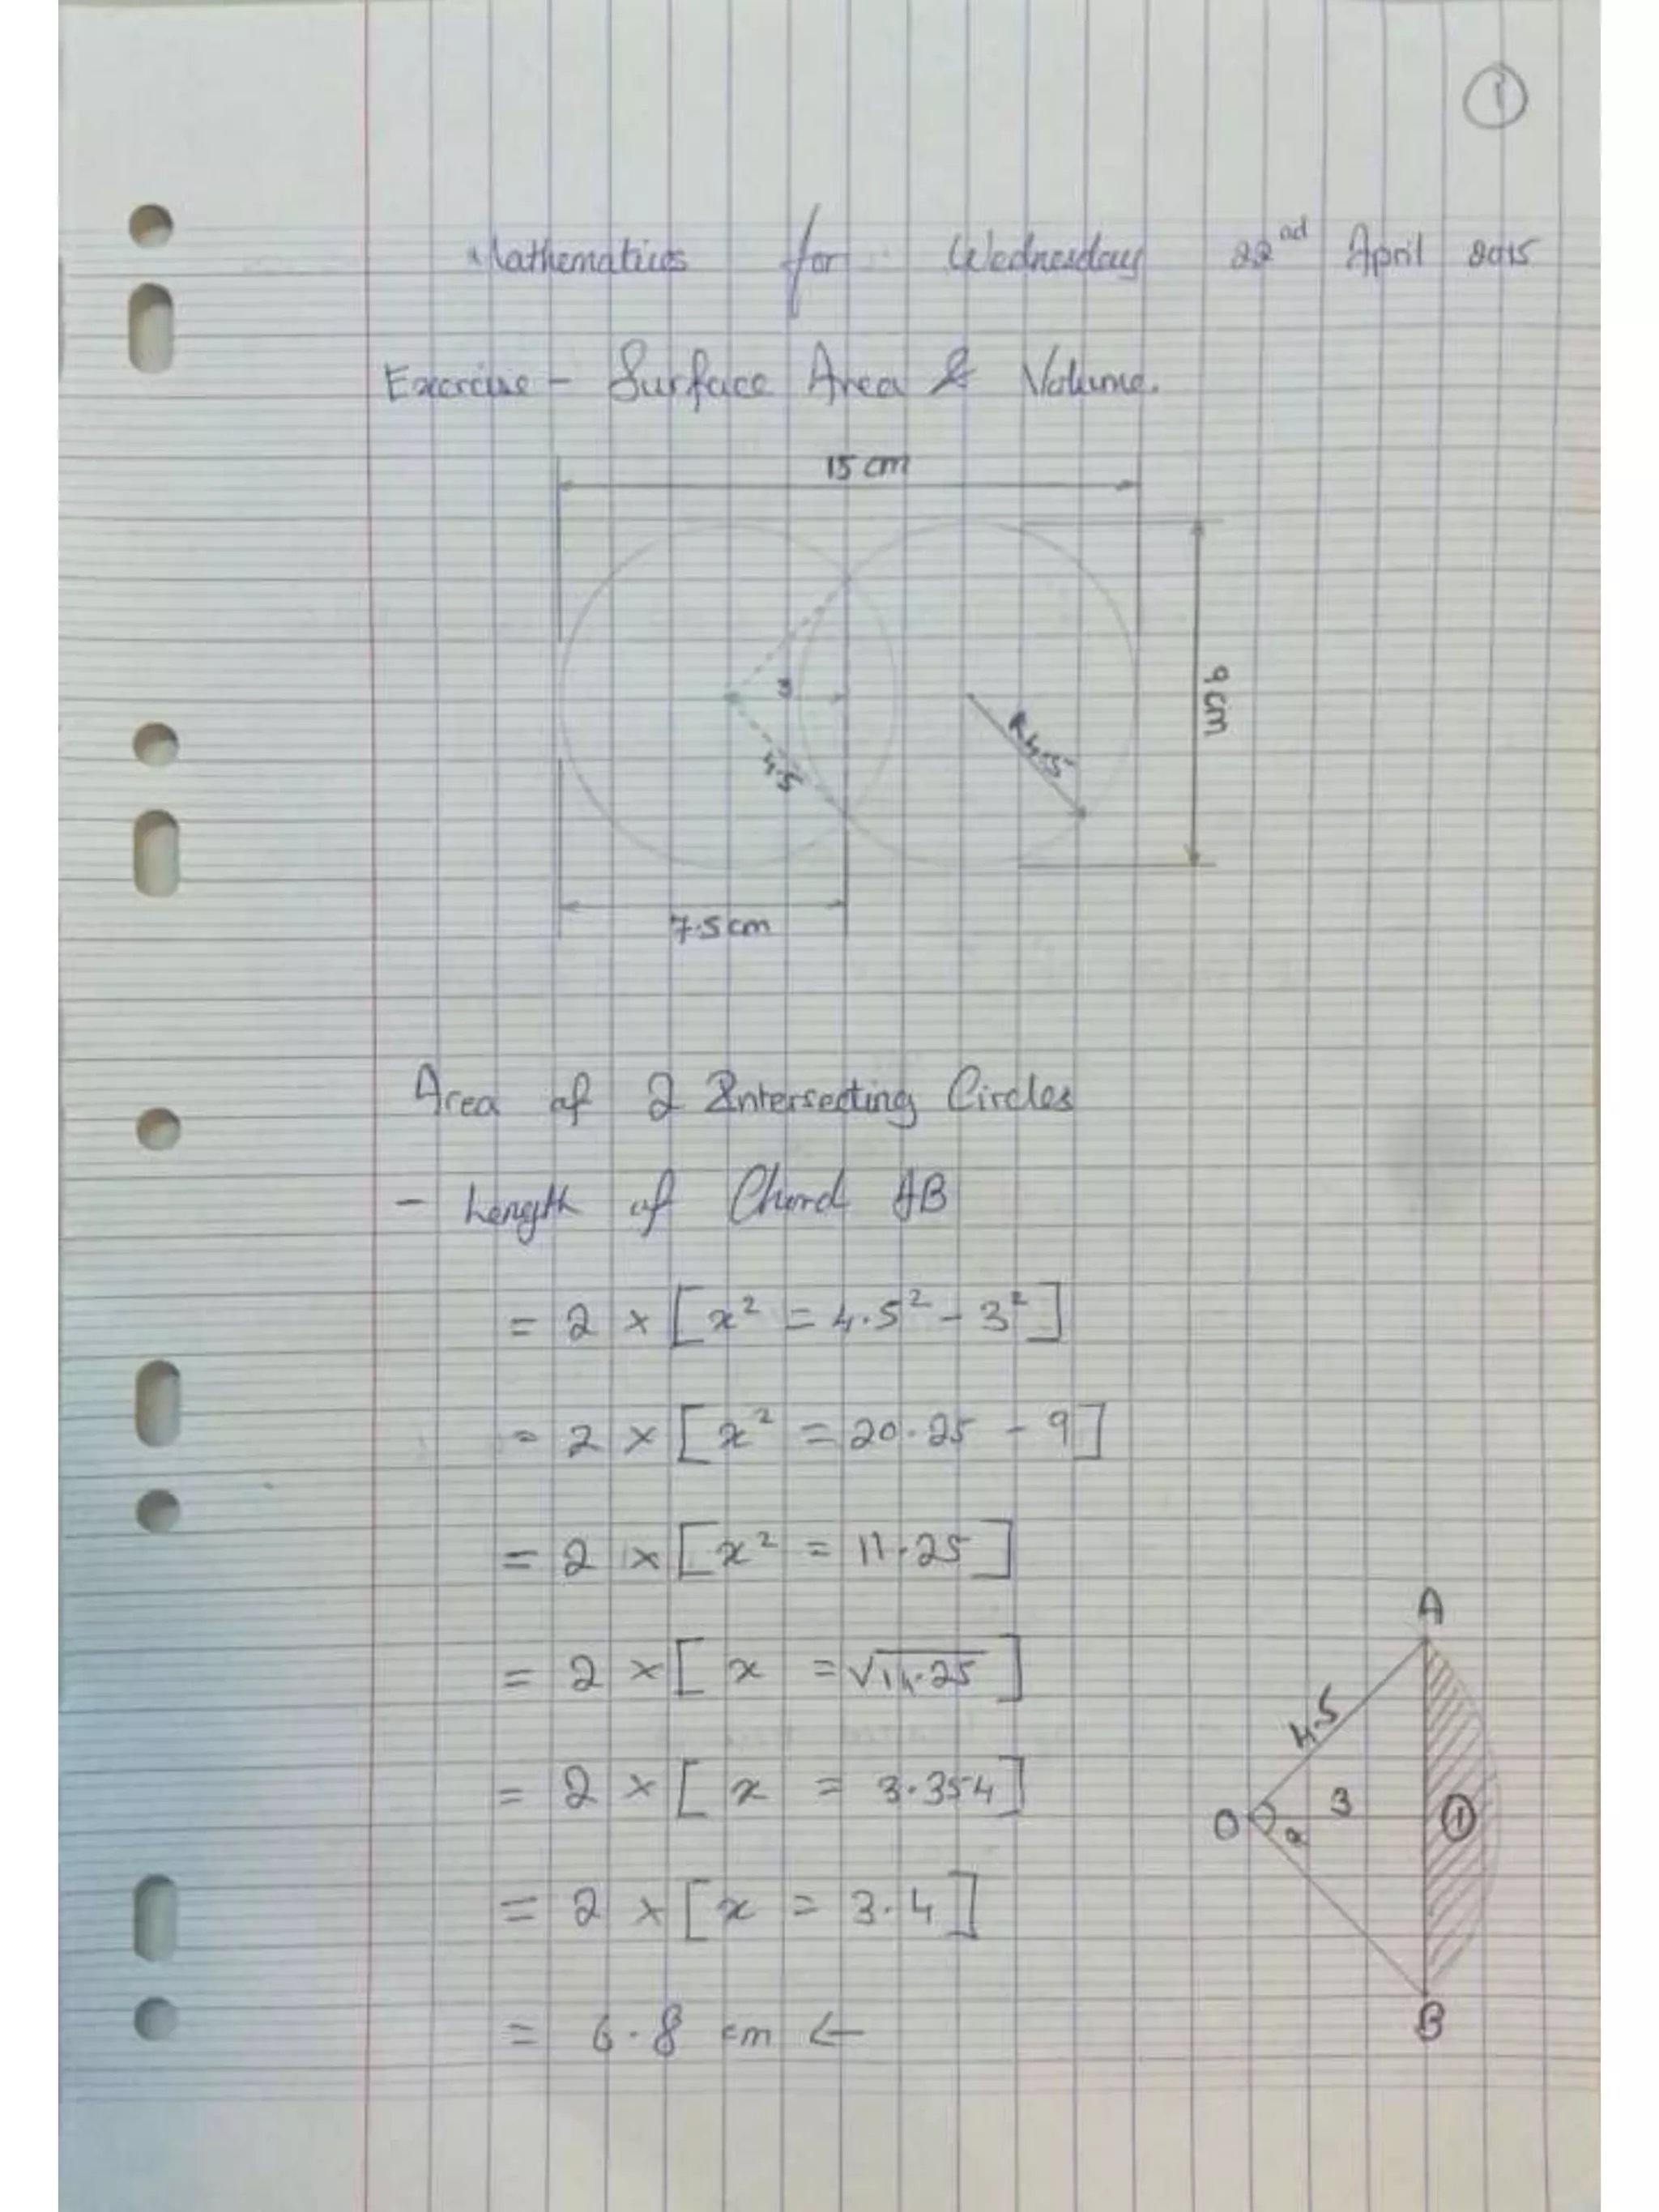 1
Mathematics for Wednesday 22nd April 2015
Exercise - Surface Area & Volume.
15 cm
3
4.5
R4.5
9 cm
7.5 cm
Area of 2 Intersecting Circles
- Length of Chord AB
= 2 × [x² = 4.5² - 3²]
= 2 × [x² = 20.25 - 9]
= 2 × [x² = 11.25]
= 2 × [x = √11.25]
= 2 × [x = 3.354]
= 2 × [x = 3.4]
= 6.8 cm ←
A
4.5
3
O
1
B